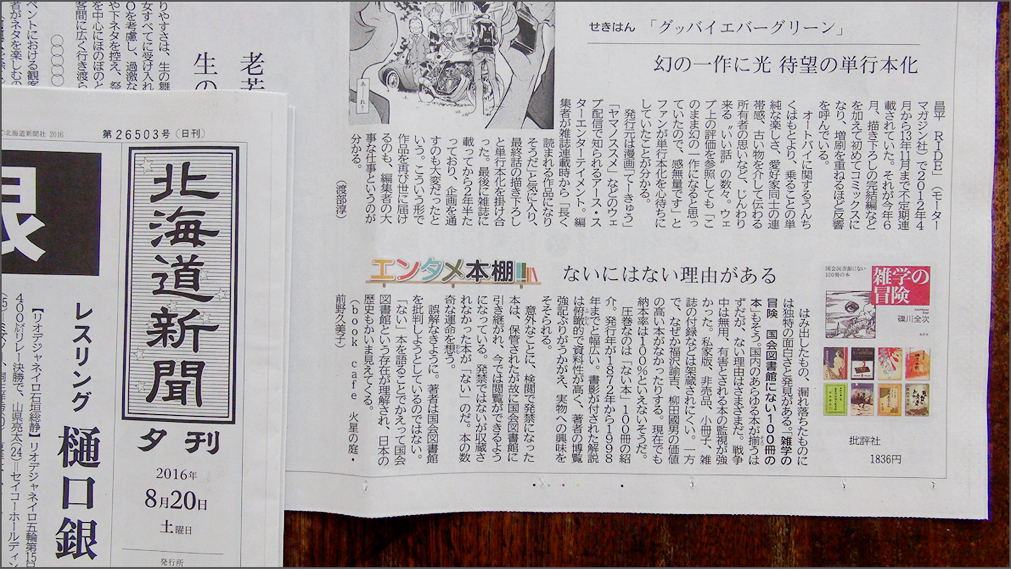 ベントにおける観客
者がネタを楽しむの
○○○○○
りやすさは、生の舞
女すべてに受け入れ
を考慮し、過激な
や下ネタを控え、祭
を中心にほのぼのと
客間に広く行き渡ら
生の
老若
北海道新聞社 2016
第26503号(日刊)
北海道新聞
夕刊
2016年
8月20日
土曜日
発行所
レスリング
樋口銀
【リオデジャネイロ石垣総静】リオデジャネイロ五輪第15日
400㍍リレー決勝で、山県亮太(24)=セイコーホールディン
せきはん 「グッバイエバーグリーン」
幻の一作に光 待望の単行本化
昌平 RIDE」(モーター
マガジン社)で2012年4
月から13年11月まで不定期連
載されていた。それが今年6
月、描き下ろしの完結編など
を加えて初めてコミックスに
なり、増刷を重ねるほど反響
を呼んでいる。
オートバイに関するうんち
くはもとより、乗ることの単
純な楽しさ、愛好家同士の連
帯感、古い物を介して伝わる
所有者の思いなど、じんわり
来る〝いい話〟の数々。ウェ
ブ上の評価を参照しても「こ
のまま幻の一作になると思っ
ていたので、感無量です」と
ファンが単行本化を心待ちに
していたことが分かる。
発行元は漫画「てーきゅう」
「ヤマノススメ」などのウェ
ブ配信で知られるアース・ス
ターエンターテイメント。編
集者が雑誌連載時から「長く
読まれる作品になり
そうだ」と気に入り、
最終話の描き下ろし
と単行本化を掛け合
った。最後に雑誌に
載ってから2年半た
っており、企画を通
すのも大変だったと
いう。こういう形で
作品を再び世に届け
るのも、編集者の大
事な仕事というのが
分かる。
(渡部淳)
エンタメ本棚
ないにはない理由がある
はみ出したもの、漏れ落ちたものに
は独特の面白さと発見がある。「雑学の
冒険 国会図書館にない100冊の
本」もそう。国内のあらゆる本が揃うは
ずだが、ない理由はさまざまだ。戦争
中は無用、有害とされる本の監視が強
かった。私家版、非売品、小冊子、雑
誌の付録などは架蔵されにくい。一方
で、なぜか福沢諭吉、柳田國男の価値
の高い本がなかったりする。現在でも
納本率は100%といえないそうだ。
圧巻なのは「ない本」100冊の紹
介。発行年が1872年から1998
年までと幅広い。書影が付された解説
は俯瞰的で資料性が高く、著者の博覧
強記ぶりがうかがえ、実物への興味を
そそられる。
意外なことに、検閲で発禁になった
本は、保管されたが故に国会図書館に
引き継がれ、今では閲覧ができるよう
になっている。発禁ではないが収蔵さ
れなかった本が「ない」のだ。本の数
奇な運命を想う。
誤解なきように。著者は国会図書館
を批判しようとしているのではない。
「ない」本を語ることでかえって国会
図書館という存在が理解され、日本の
歴史もかいま見えてくる。
(book cafe 火星の庭・
前野久美子)
国会図書館にない
100冊の本
雑学の
冒険
礫川全次
批評社
1836円